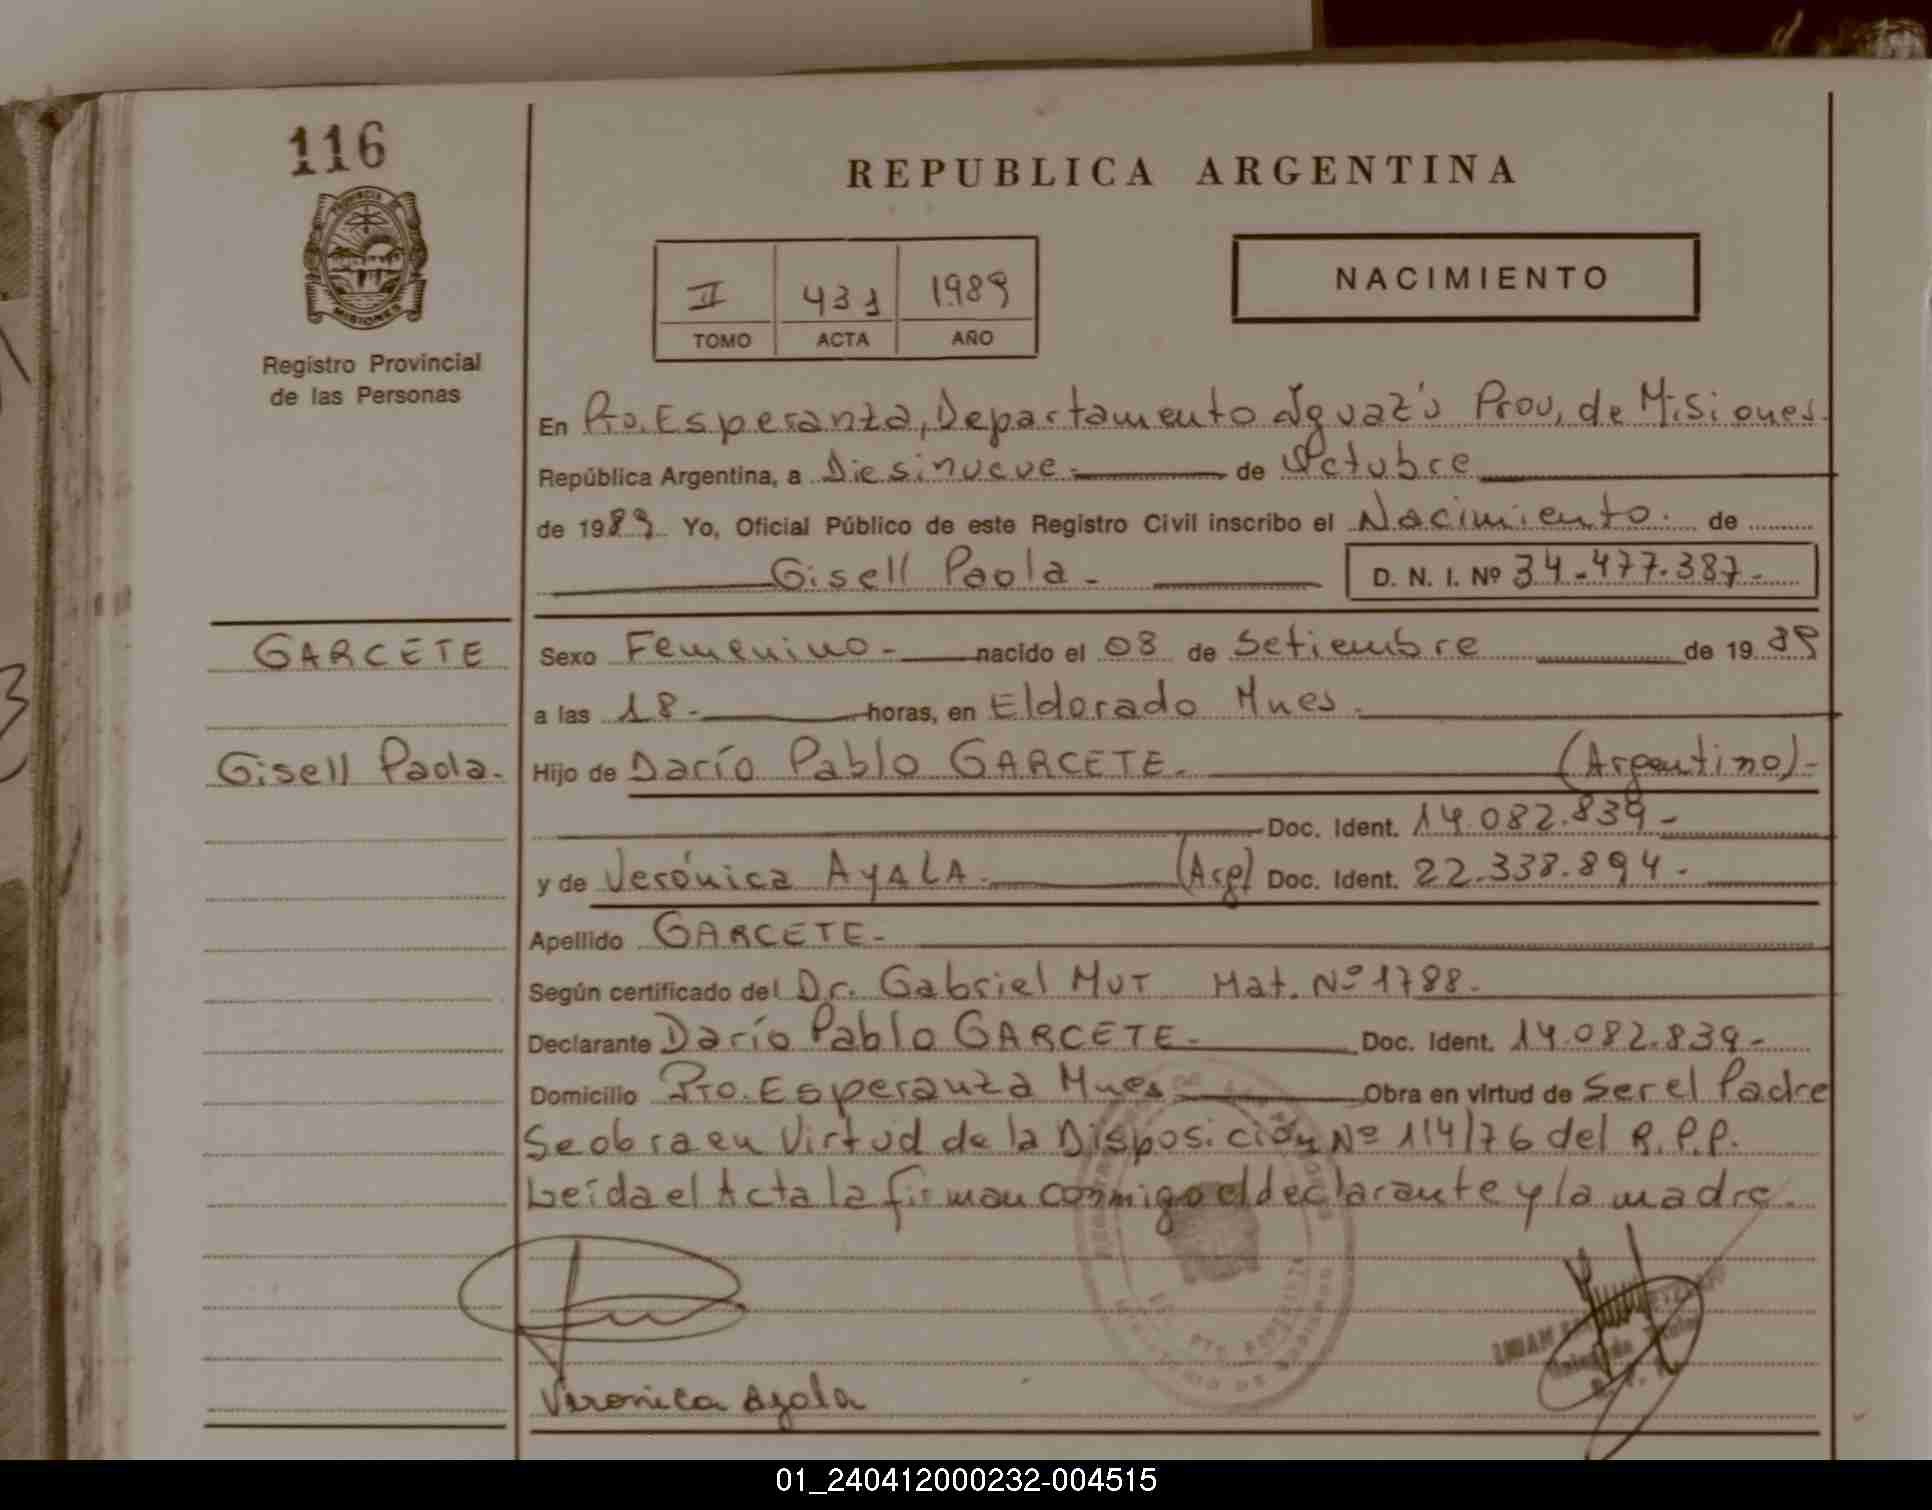 116
REPUBLICA ARGENTINA
PROVINCIA
MISIONES
Registro Provincial
de las Personas
II 431 1989
TOMO ACTA AÑO
NACIMIENTO
En Pto. Esperanza, Departamento Iguazú Prov, de Misiones.
República Argentina, a Diesinueve.- de Octubre
de 1989 Yo, Oficial Público de este Registro Civil inscribo el Nacimiento. de
Gisell Paola - D. N. I. Nº 34-477.387-
GARCETE Sexo Femenino - nacido el 08 de Setiembre de 1989
a las 18- horas, en Eldorado Mnes.
Gisell Paola. Hijo de Darío Pablo GARCETE. (Argentino)-
Doc. Ident. 14.082.839-
y de Verónica AyALA. (Arg) Doc. Ident. 22.338.894-
Apellido GARCETE-
Según certificado del Dr. Gabriel MUT Mat. Nº 1788.
Declarante Darío Pablo GARCETE- Doc. Ident. 14.082.839-
Domicilio Pto. Esperanza Mnes Obra en virtud de Ser el Padre
Se obra en Virtud de la Disposición Nº 114/76 del R.P.P.
Leída el Acta la firman conmigo el declarante y la madre.
PTO. ESPERANZA
Veronica Ayala
01_240412000232-004515